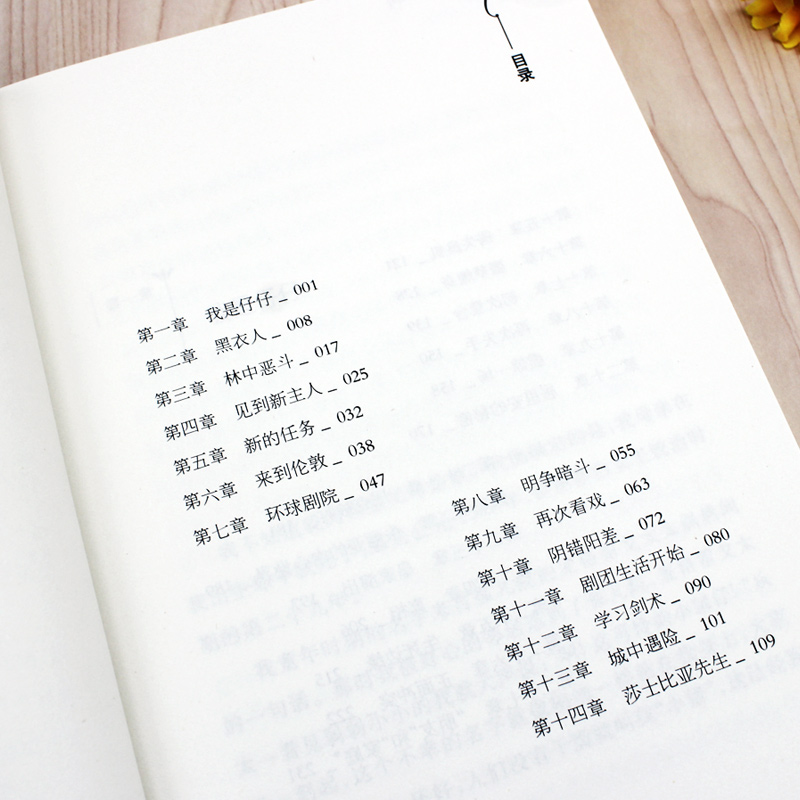 目录
第一章 我是仔仔 _ 001
第二章 黑衣人 _ 008
第三章 林中恶斗 _ 017
第四章 见到新主人 _ 025
第五章 新的任务 _ 032
第六章 来到伦敦 _ 038
第七章 环球剧院 _ 047
第八章 明争暗斗 _ 055
第九章 再次看戏 _ 063
第十章 阴错阳差 _ 072
第十一章 剧团生活开始 _ 080
第十二章 学习剑术 _ 090
第十三章 城中遇险 _ 101
第十四章 莎士比亚先生 _ 109